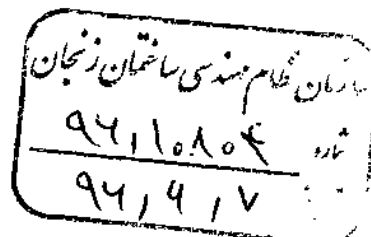 سازمان نظام مهندسی ساختمان زنجان
شماره ۹۶,۱۰۸۰۴
۹۶,۹,۷